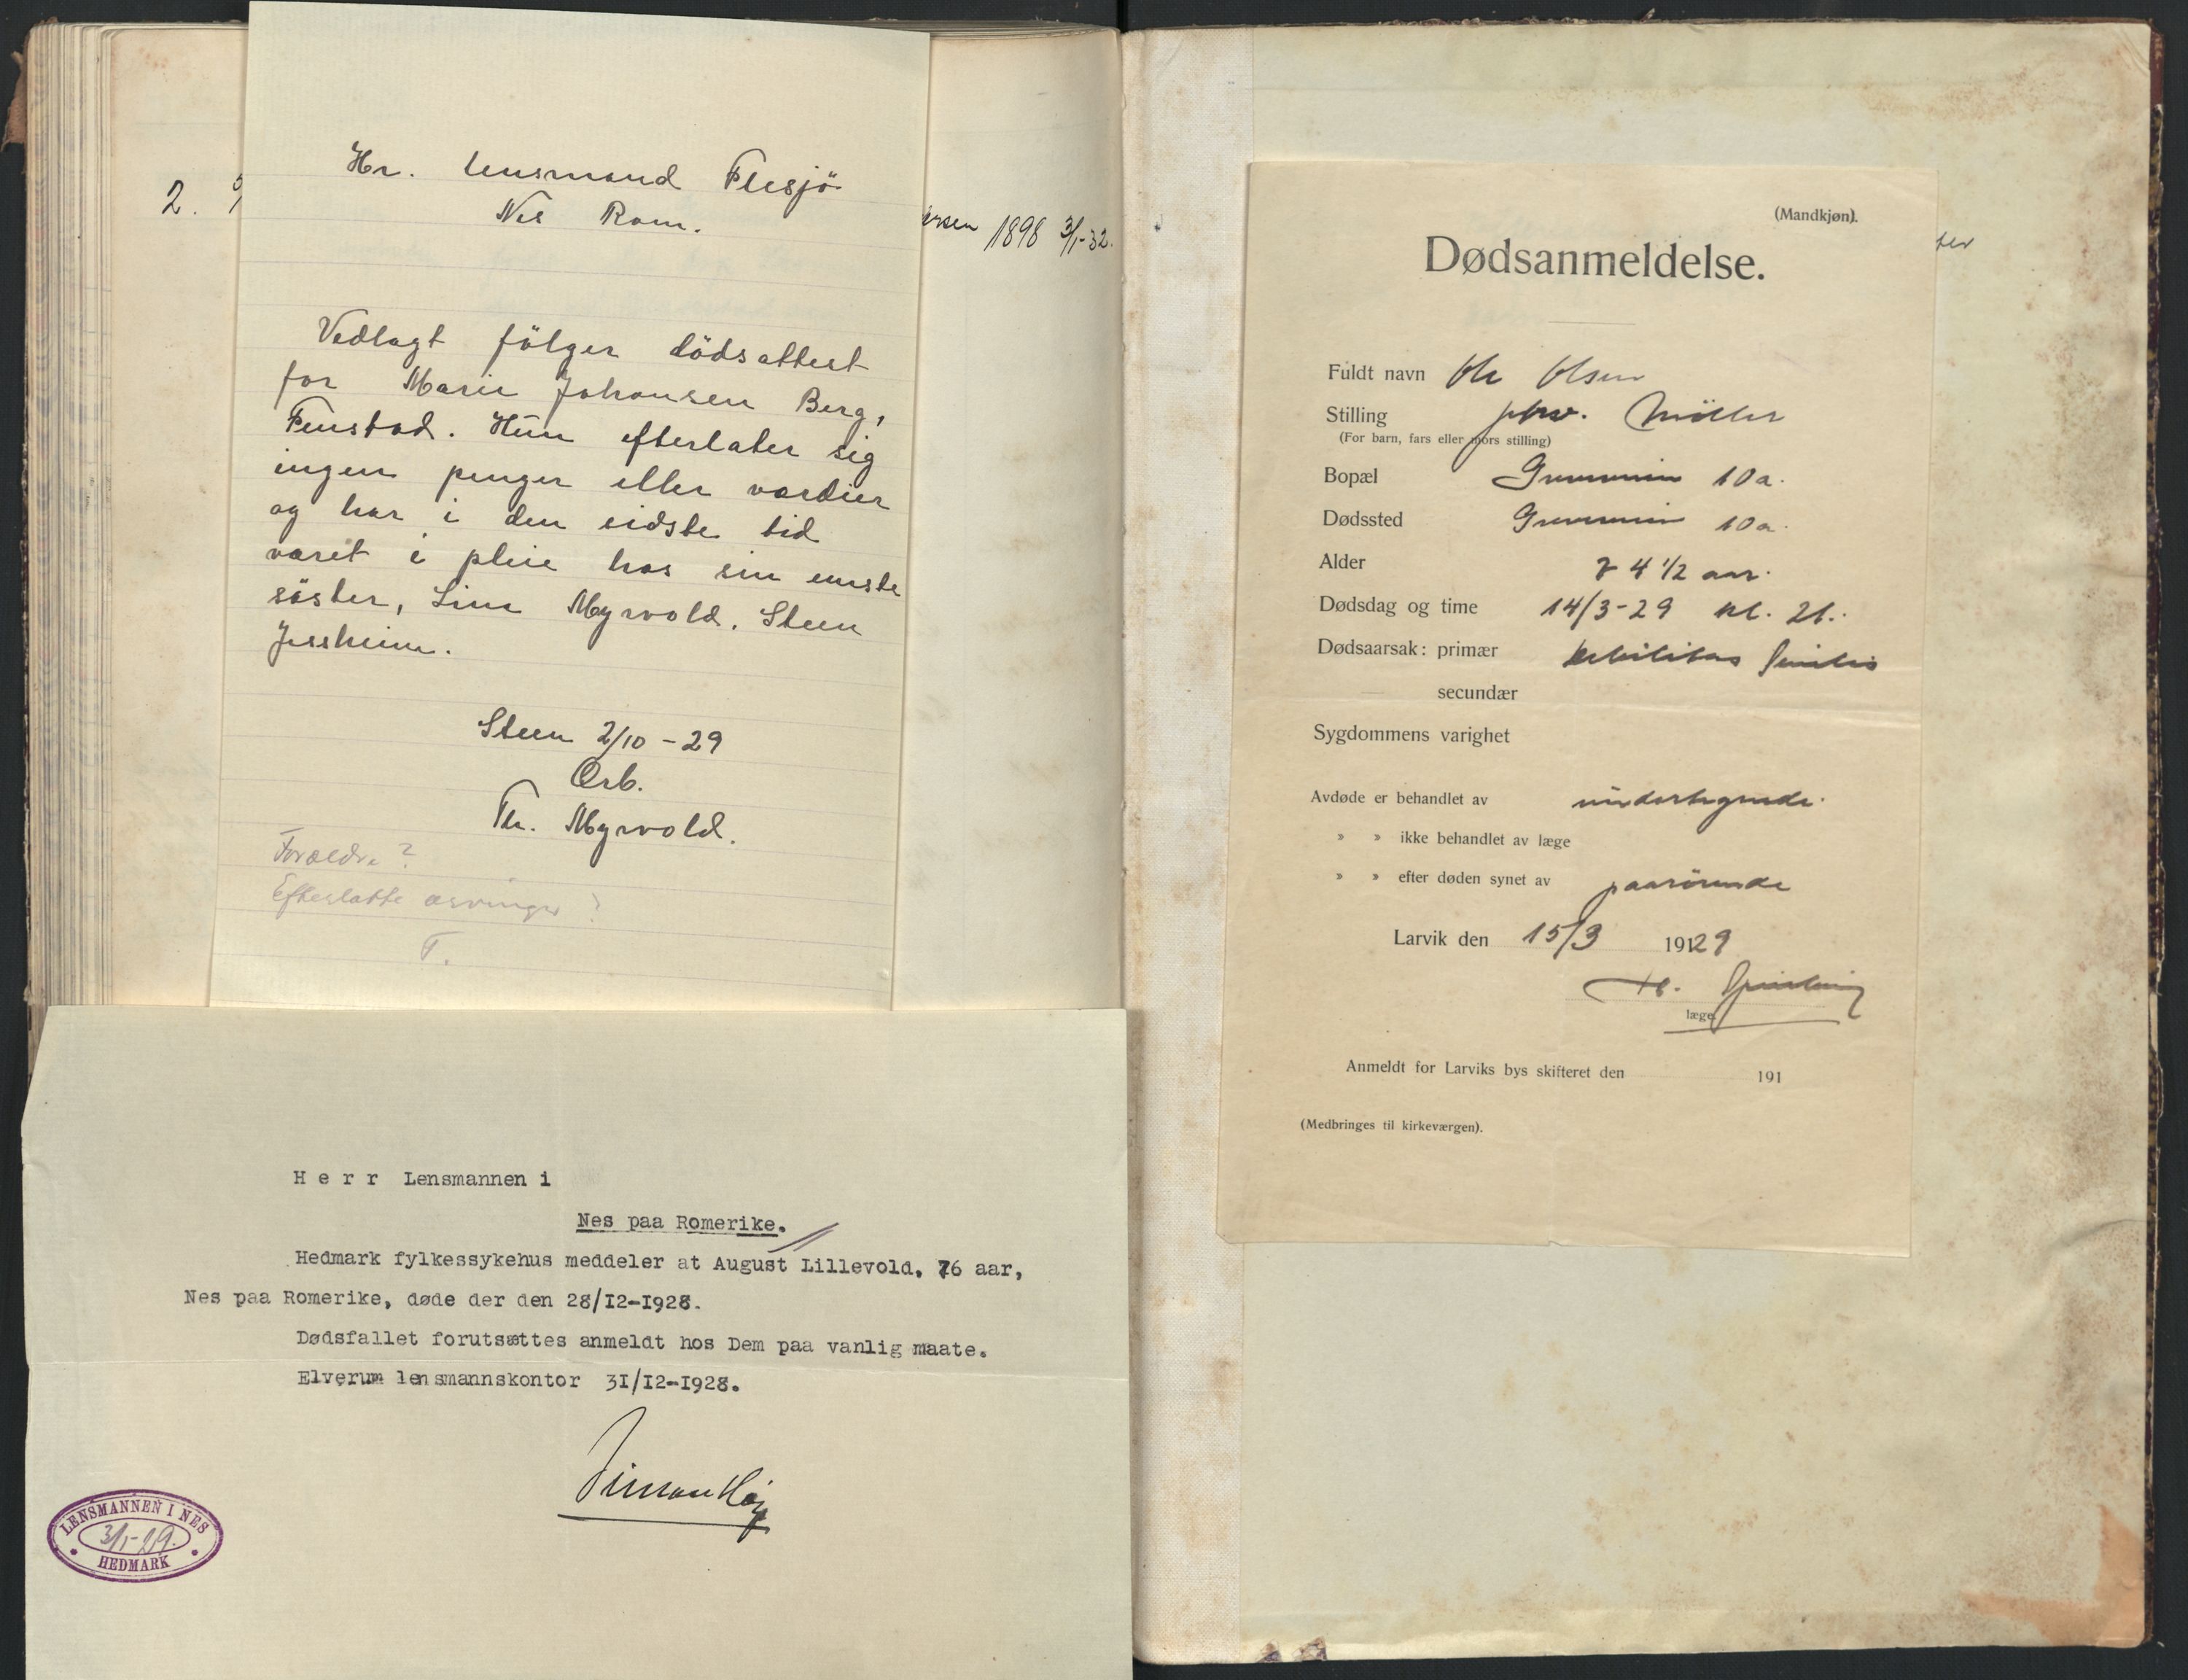 2.
Hr. Lensmand Flesjö
Nes Rom.
Vedlagt fölger dödsattest
for Marie Johansen Berg,
Fenstad. Hun efterlater sig
ingen penger eller værdier
og har i den sidste tid
været i pleie hos sin eneste
söster, Lina Myrvold. Steen
Jessheim.
Steen 2/10 - 29
Ærb.
Th. Myrvold.
Forældre?
Efterlatte arvinger?
T.
ersen 1898 3/1-32.
Herr Lensmannen i
Nes paa Romerike.
Hedmark fylkessykehus meddeler at August Lillevold, 76 aar,
Nes paa Romerike, døde der den 28/12-1928.
Dødsfallet forutsættes anmeldt hos Dem paa vanlig maate.
Elverum lensmannskontor 31/12-1928.
LENSMANNEN I NES
3/1-29.
HEDMARK
(Mandkjøn).
Dødsanmeldelse.
Fuldt navn Ole Olsen
Stilling Möller
(For barn, fars eller mors stilling)
Bopæl 10a.
Dødssted 10a.
Alder 74 1/2 aar.
Dødsdag og time 14/3-29 kl. 21.
Dødsaarsak: primær Debilitas senilis
secundær
Sygdommens varighet
Avdøde er behandlet av undertegnede.
» » ikke behandlet av læge
» » efter døden synet av paarørende
Larvik den 15/3 1929
læge.
Anmeldt for Larviks bys skifteret den 191
(Medbringes til kirkeværgen).